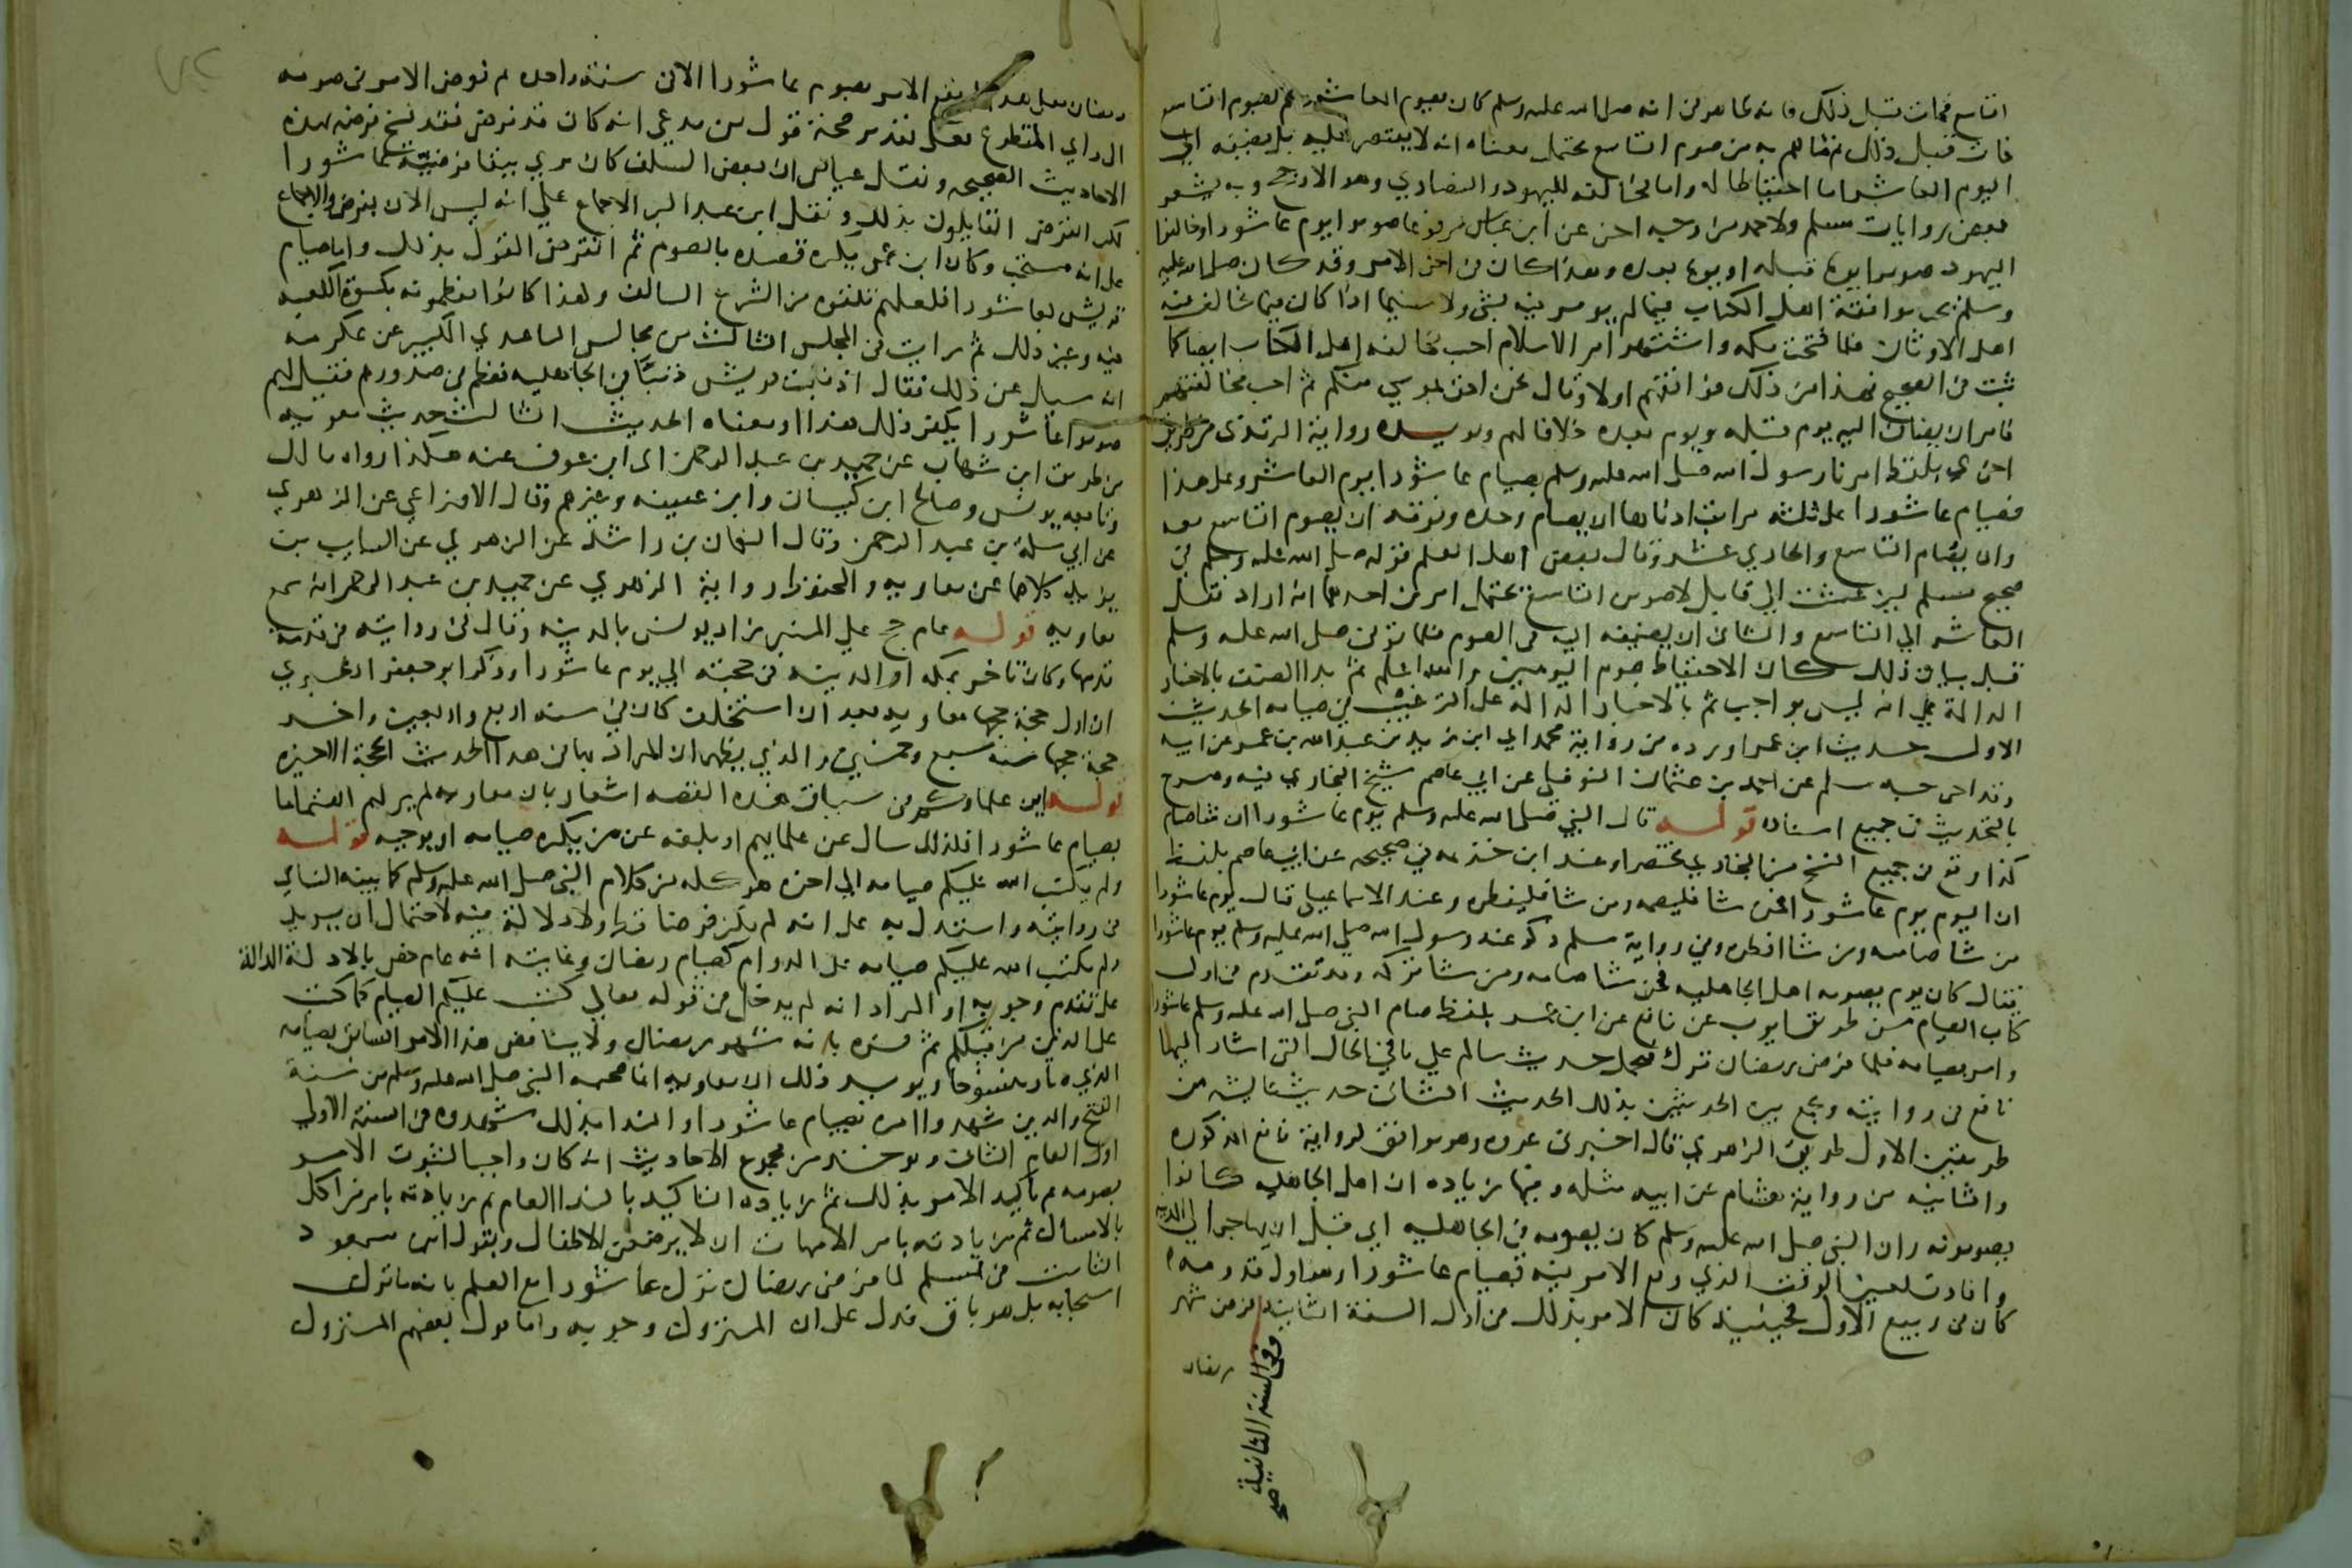 التاسع فمات قبل ذلك فانه ظاهر في انه صلى الله عليه وسلم كان يصوم العاشر وهم بصوم التاسع
فمات قبل ذلك ثم ما هم به من صوم التاسع يحتمل معناه انه لا يقتصر عليه بل يضيفه الى
اليوم العاشر اما احتياطا له واما مخالفة لليهود والنصارى وهو الارجح وبه يشعر
بعض روايات مسلم ولاحمد من وجه اخر عن ابن عباس مرفوعا صوموا يوم عاشورا وخالفوا
اليهود صوموا يوما قبله او يوما بعده وهذا كان في اخر الامر وقد كان صلى الله عليه
وسلم يحب موافقة اهل الكتاب فيما لم يومر فيه بشي ولا سيما اذا كان فيما يخالف فيه
اهل الاوثان فلما فتحت مكه واشتهر امر الاسلام احب مخالفة اهل الكتاب ايضا كما
ثبت في الصحيح فهذا من ذلك فوافقهم اولا وقال نحن احق بموسى منكم ثم احب مخالفتهم
فامر ان يضاف اليه يوم قبله ويوم بعده خلافا لهم ويويده رواية الترمذي من طريق
اخرى بلفظ امرنا رسول الله صلى الله عليه وسلم بصيام عاشورا يوم العاشر وعلى هذا
فصيام عاشورا على ثلثه مراتب ادناها ان يصام وحده وفوقه ان يصوم التاسع معه
وان يصام التاسع والحادي عشر وقال بعض اهل العلم قوله صلى الله عليه وسلم في
صحيح مسلم لين عشت الى قابل لاصومن التاسع يحتمل امرين احدهما انه اراد نقل
العاشر الى التاسع والثاني ان يضيفه اليه في الصوم فلما توفي صلى الله عليه وسلم
قبل بيان ذلك كان الاحتياط صوم اليومين والله اعلم ثم بدا المصنف بالاخبار
الدالة على انه ليس بواجب ثم بالاخبار الدالة على الترغيب في صيامه الحديث
الاول حديث ابن عمر اورده من رواية عمر بن محمد ابن زيد بن عبد الله بن عمر عن ابيه
وقد اخرجه مسلم عن احمد بن عثمان النوفلي عن ابي عاصم شيخ البخاري فيه وصرح
بالتحديث في جميع اسناده قوله قال النبي صلى الله عليه وسلم يوم عاشورا ان شا صام
كذا وقع في جميع النسخ من البخاري مختصرا وعند ابن خزيمه في صحيحه عن ابي عاصم بلفظ
ان اليوم يوم عاشورا فمن شا فليصمه ومن شا فليفطره وعند الاسماعيلي قال يوم عاشورا
من شا صامه ومن شا افطره وفي رواية مسلم ذكر عند رسول الله صلى الله عليه وسلم يوم عاشورا
فقال كان يوم يصومه اهل الجاهليه فمن شا صامه ومن شا تركه وقد تقدم في اول
كتاب الصيام من طريق ايوب عن نافع عن ابن عمر بلفظ صام النبي صلى الله عليه وسلم عاشورا
وامر بصيامه فلما فرض رمضان ترك فيحمل حديث سالم على ثاني الحال التي اشار اليها
نافع في روايته ويجمع بين الحديثين بذلك الحديث الثاني حديث عايشه من
طريقين الاول طريق الزهري قال اخبرني عروه وهو موافق لرواية نافع المذكوره
والثانيه من رواية هشام عن ابيه مثله وفيها زياده ان اهل الجاهليه كانوا
يصومونه وان النبي صلى الله عليه وسلم كان يصومه في الجاهليه اي قبل ان يهاجر الى المدينه
وافادت تعيين الوقت الذي وقع الامر فيه بصيام عاشورا وهو اول قدومه
كان في ربيع الاول فحينيذ كان الامر بذلك في اول السنة الثانية فرض شهر
رمضان
وفي السنة الثانية صح
رمضان فعلى هذا لم يقع الامر بصوم عاشورا الا في سنة واحده ثم فوض الامر في صومه
الى راي المتطوع فعلى تقدير صحة قول من يدعي انه كان قد فرض فقد نسخ فرضه بهذه
الاحاديث الصحيحه ونقل عياض ان بعض السلف كان يرى بقا فرضية عاشورا
لكن انقرض القايلون بذلك ونقل ابن عبد البر الاجماع على انه ليس الان بفرض والاجماع
على انه مستحب وكان ابن عمر يكره قصده بالصوم ثم انقرض القول بذلك واما صيام
قريش لعاشورا فلعلهم تلقوه من الشرع السالف ولهذا كانوا يعظمونه بكسوة الكعبه
فيه وغير ذلك ثم رايت في المجلس الثالث من مجالس الباغندي الكبير عن عكرمه
انه سيل عن ذلك فقال اذنبت قريش ذنبا في الجاهليه فعظم في صدورهم فقيل لهم
صوموا عاشورا يكفر ذلك هذا او معناه الحديث الثالث حديث معويه
من طريق ابن شهاب عن حميد بن عبد الرحمن اي ابن عوف عنه هكذا رواه مالك
وتابعه يونس وصالح ابن كيسان وابن عيينه وغيرهم وقال الاوزاعي عن الزهري
عن ابي سلمة بن عبد الرحمن وقال النعمان بن راشد عن الزهري عن السايب بن
يزيد كلاهما عن معاويه والمحفوظ رواية الزهري عن حميد بن عبد الرحمن انه سمع
معاويه قوله عام حج على المنبر زاد يونس بالمدينه وقال في روايته في قدمه
قدمها وكان تاخر بمكه او المدينه في حجته الى يوم عاشورا وذكر ابو جعفر الطبري
ان اول حجة حجها معاويه بعد ان استخلف كان في سنه اربع واربعين واخر
حجة حجها سنه سبع وخمسين والذي يظهر ان المراد بها في هذا الحديث الحجة الاخيره
قوله اين علماوكم في سياق هذه القصه اشعار بان معاويه لم ير لهم اهتماما
بصيام عاشورا فلذلك سال عن علمايهم او بلغه عن من يكره صيامه او يوجبه قوله
ولم يكتب الله عليكم صيامه الى اخره هو كله من كلام النبي صلى الله عليه وسلم كما بينه النساي
في روايته واستدل به على انه لم يكن فرضا قط ولا دلالة فيه لاحتمال ان يريد
ولم يكتب الله عليكم صيامه على الدوام كصيام رمضان وغايته انه عام خص بالادلة الدالة
على تقدم وجوبه او المراد انه لم يدخل في قوله تعالى كتب عليكم الصيام كما كتب
على الذين من قبلكم ثم فسره بانه شهر رمضان ولا يناقض هذا الامر السابق بصيامه
الذي صار منسوخا ويويد ذلك ان معاويه انما صحب النبي صلى الله عليه وسلم من سنة
الفتح والذين شهدوا امره بصيام عاشورا والندا بذلك شهدوه في السنة الاولى
اول العام الثاني ويوخذ من مجموع الاحاديث انه كان واجبا لثبوت الامر
بصومه ثم تاكيد الامر بذلك ثم زيادة التاكيد بالندا العام ثم زيادته بامر من اكل
بالامساك ثم زيادته بامر الامهات ان لا يرضعن فيه الاطفال وبقول ابن مسعود
الثابت في مسلم لما فرض رمضان ترك عاشورا مع العلم بانه ما ترك
استحبابه بل هو باق فدل على ان المتروك وجوبه واما قول بعضهم المتروك